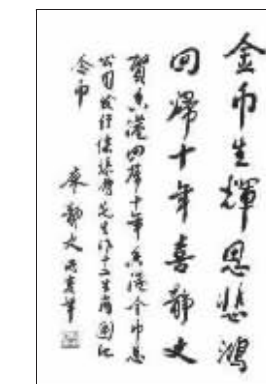 金币生輝思悲鴻
回歸十年喜静文
賀香港回歸十年香港金币总
公司发行徐悲鸿先生作十二生肖图纪
念币
廖静文